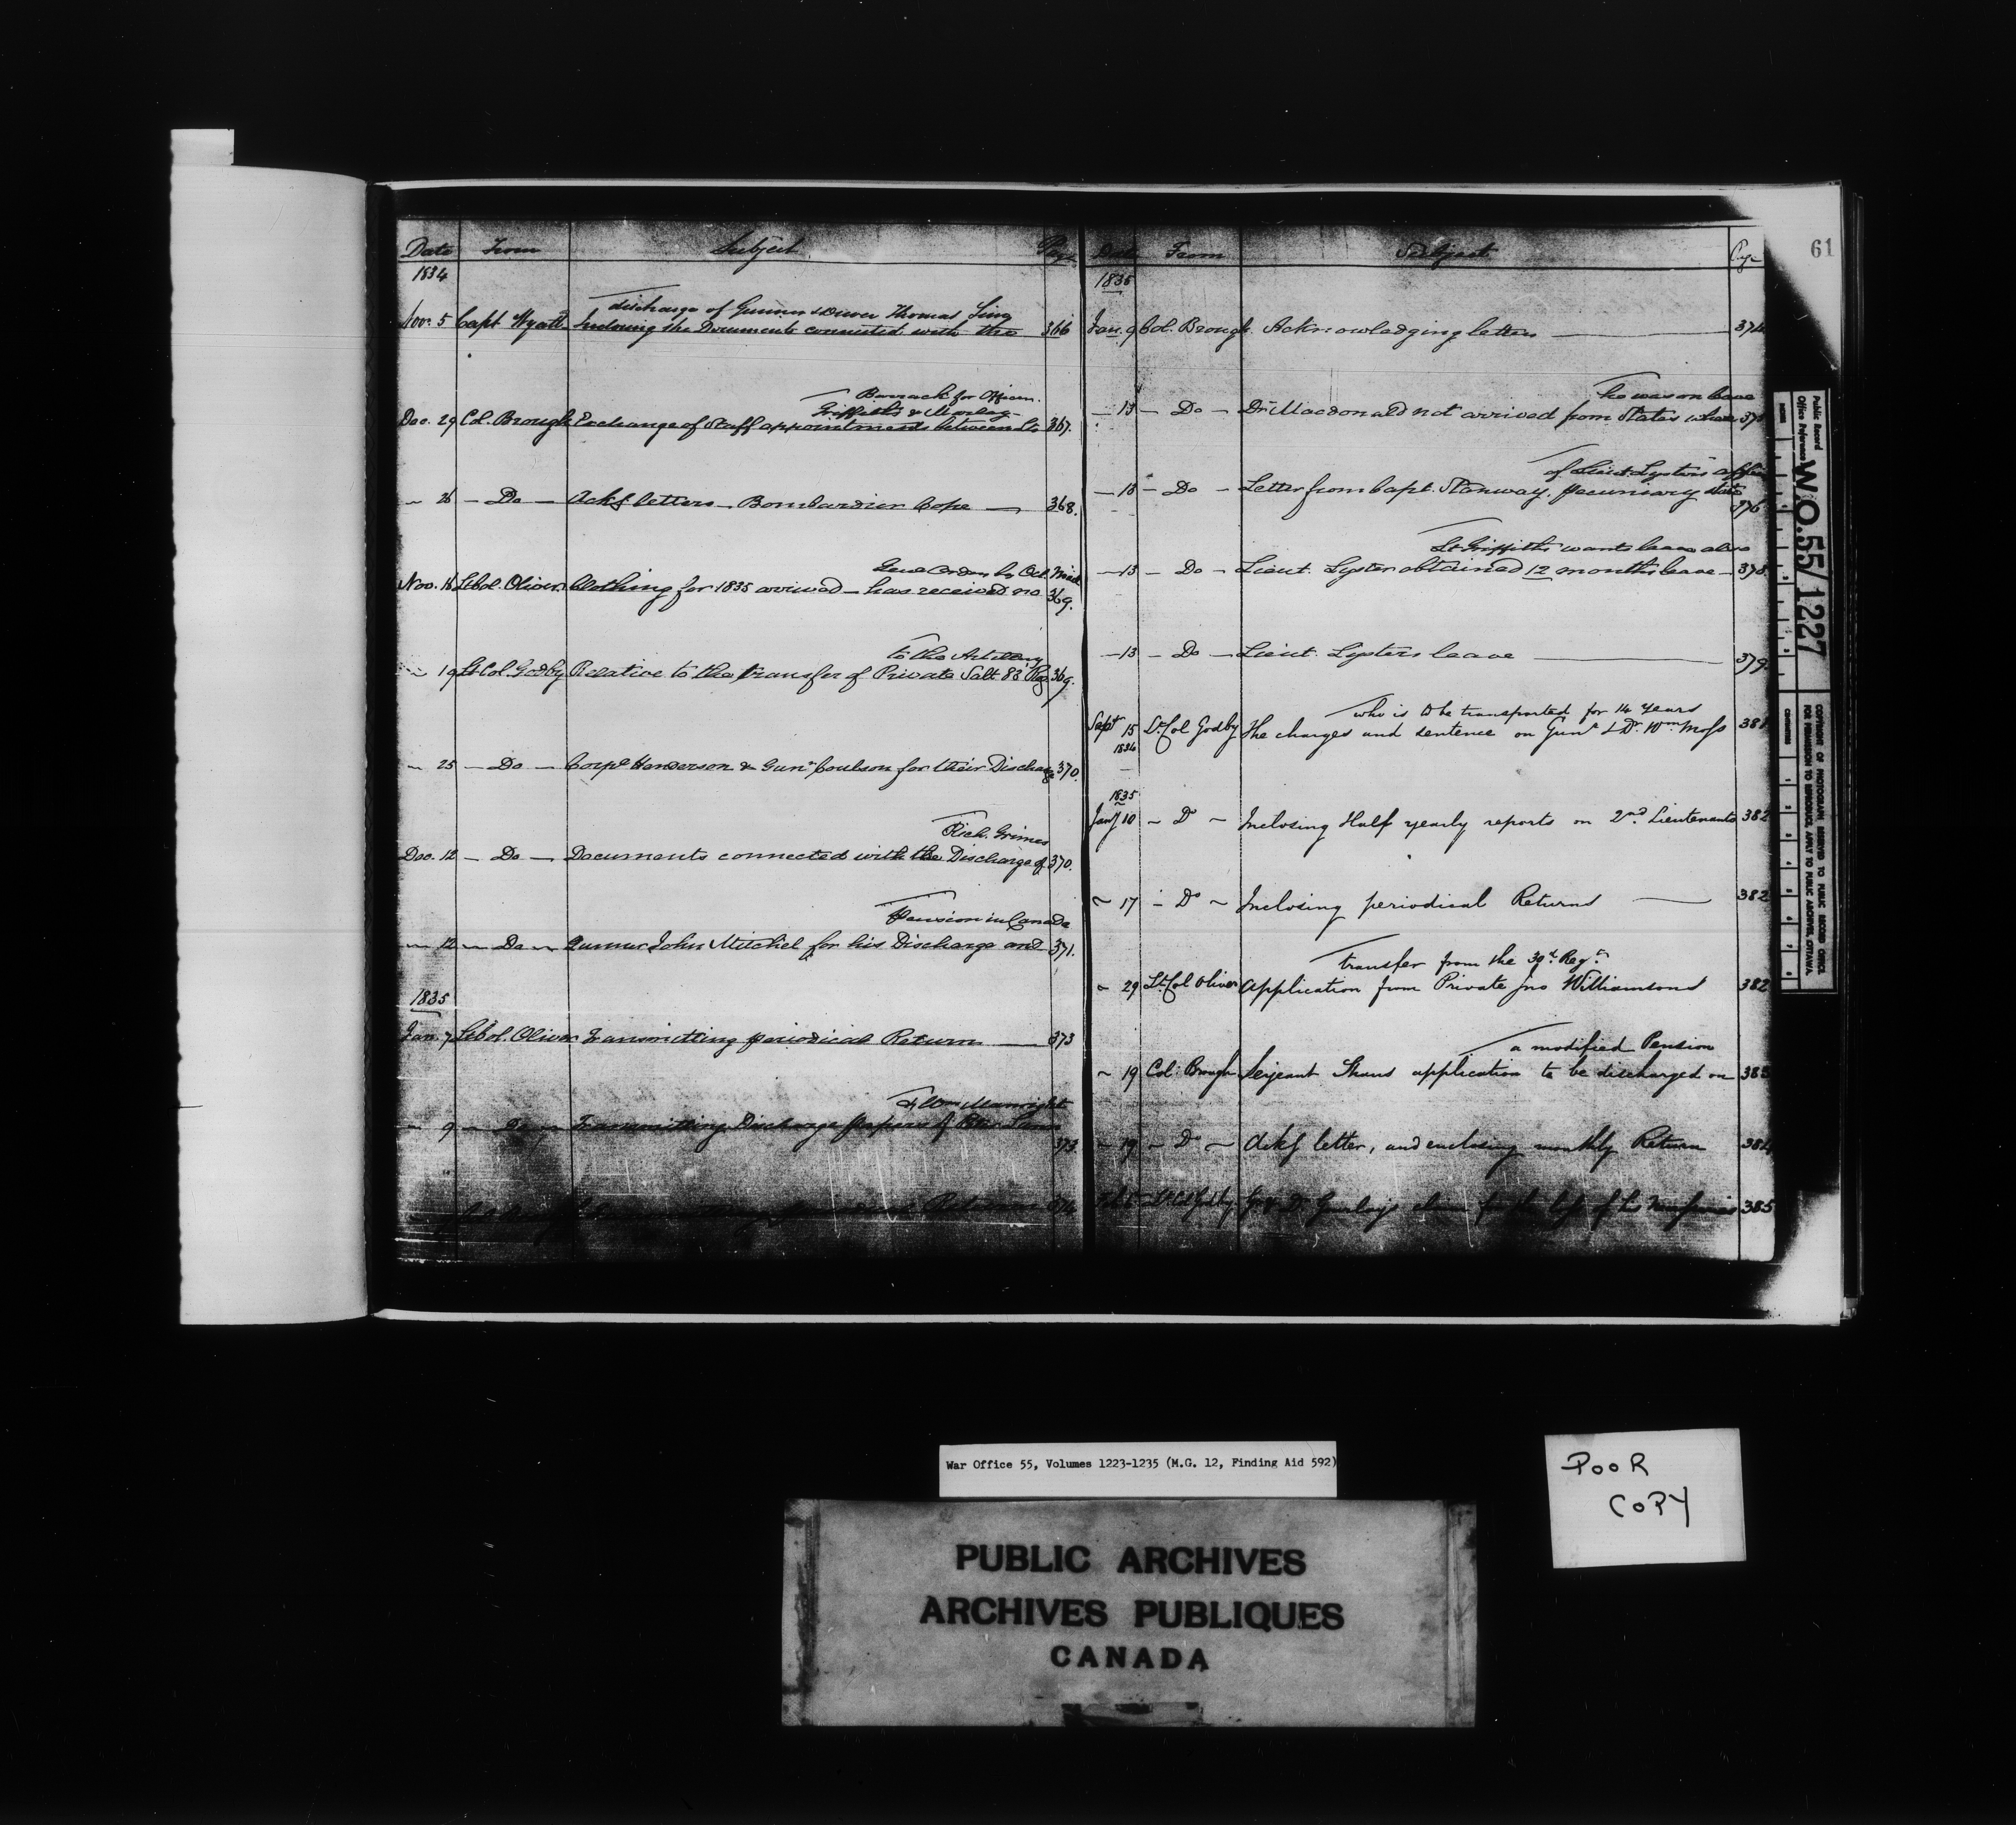 61
Date From Subject Page
1834
discharge of Gunner & Driver Thomas
Nov. 5 Capt Wyatt Inclosing the Documents connected with the 366
Barrack for Officers.
Griffiths & Morley
Dec. 29 Col. Brough Exchange of Staff appointments between Lts 367.
" 26 - Do - Ackg letters - Bombardier Cope 368.
Genl Orders by Oct. Mail
Nov. 16 Lt Col. Oliver Clothing for 1835 arrived - has received no 369.
to the Artillery
" 19 Lt Col. Godby Relative to the transfer of Private Salt 83 Reg 369.
" 25 - Do - Corpl Henderson & Gunr Coulson for their Discharge 370.
Rich. Grimes
Dec. 12 - Do - Documents connected with the Discharge of 370.
Pension in Canada
" 12 - Do - Gunner John Mitchel for his Discharge and 371.
1835
Jan. 7 Lt Col. Oliver Transmitting periodical Return 373
& Wm
" 9 - Do - Transmitting Discharge papers of 373
Returns 374
Date From Subject Page
1835
Jan. 9 Col. Brough Acknowledging letters 374
he was on leave
- 13 - Do - Dr Macdonald not arrived from States where 375
of Lieut. Lysters affairs
- 13 - Do - Letter from Capt. Stanway. pecuniary state 376
Lt Griffiths wants leave also
- 13 - Do - Lieut. Lyster obtained 12 months leave 378.
- 13 - Do - Lieut. Lysters leave 379.
who is to be transported for 14 years
Sept 15 Lt Col Godby The charges and sentence on Gunr & Dr Wm Moss 381
1834
1835
Jany 10 - Do - Inclosing Half yearly reports on 2nd Lieutenants 382
" 17 - Do - Inclosing periodical Returns 382
transfer from the 39th Regt
" 29 Lt Col Oliver Application from Private Jno Williamsond 382
a modified Pension
" 19 Col: Brough Serjeant application to be discharged on 383
" 19 - Do - Ackg letter, and enclosing monthly Return 384
G & Dr claim for the loss of his 385
Public Record
Office Reference
W.O.55/1227
INCHES
CENTIMETRES
COPYRIGHT OF PHOTOGRAPH RESERVED TO PUBLIC RECORD OFFICE.
FOR PERMISSION TO REPRODUCE APPLY TO PUBLIC ARCHIVES, OTTAWA.
War Office 55, Volumes 1223-1235 (M.G. 12, Finding Aid 592)
POOR
COPY
PUBLIC ARCHIVES
ARCHIVES PUBLIQUES
CANADA